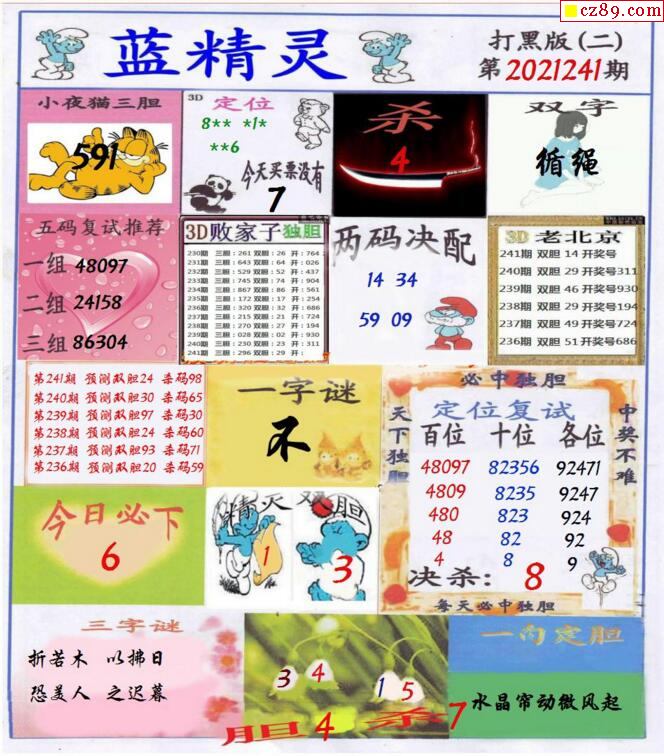 cz89.com
蓝精灵
打黑版(二)
第2021241期
小夜猫三胆
591
3D 定位
8** *1*
**6
今天买票没有
7
杀
4
双字
循绳
五码复试推荐
一组 48097
二组 24158
三组 86304
3D败家子独胆
230期 三胆:261 双胆:26 开:764
231期 三胆:643 双胆:64 开:026
232期 三胆:529 双胆:52 开:437
233期 三胆:745 双胆:74 开:904
234期 三胆:867 双胆:86 开:561
235期 三胆:172 双胆:17 开:254
236期 三胆:320 双胆:32 开:686
237期 三胆:215 双胆:21 开:724
238期 三胆:270 双胆:27 开:194
239期 三胆:028 双胆:02 开:930
240期 三胆:301 双胆:30 开:311
241期 三胆:296 双胆:29 开:
两码决配
14 34
59 09
3D 老北京
241期 双胆 14 开奖号
240期 双胆 29 开奖号311
239期 双胆 46 开奖号930
238期 双胆 29 开奖号194
237期 双胆 49 开奖号724
236期 双胆 51 开奖号686
第241期 预测双胆24 杀码98
第240期 预测双胆30 杀码65
第239期 预测双胆97 杀码30
第238期 预测双胆24 杀码60
第237期 预测双胆93 杀码71
第236期 预测双胆20 杀码59
一字谜
不
必中独胆
天下独胆
中奖不难
定位复试
百位 十位 各位
48097 82356 92471
4809 8235 9247
480 823 924
48 82 92
4 8 9
决杀: 8
每天必中独胆
今日必下
6
精灵双胆
1
3
三字谜
折若木 以拂日
恐美人 之迟暮
3 4
1 5
月胆 4 杀 7
一句定胆
水晶帘动微风起